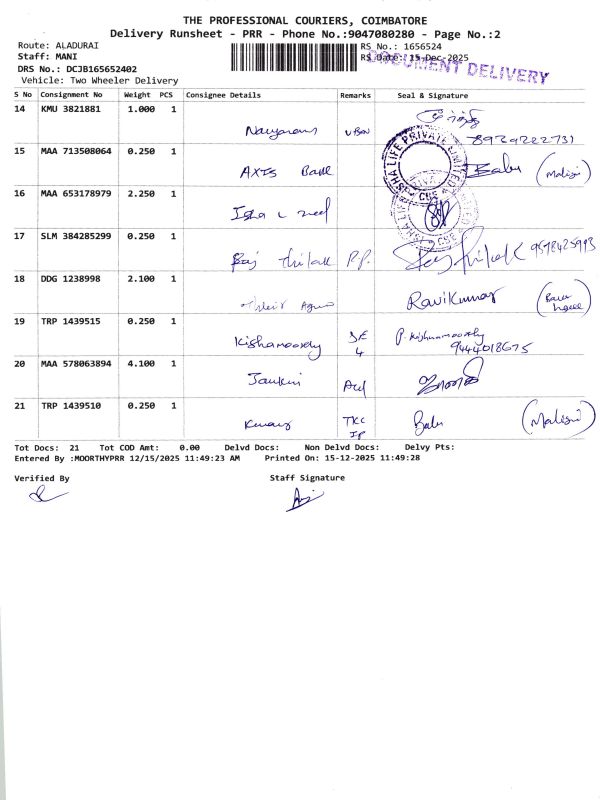 THE PROFESSIONAL COURIERS, COIMBATORE
Delivery Runsheet - PRR - Phone No.:9047080280 - Page No.:2
Route: ALADURAI
Staff: MANI
DRS No.: DCJB165652402
Vehicle: Two Wheeler Delivery
RS No.: 1656524
RS Date: 15-Dec-2025
DOCUMENT DELIVERY
S No Consignment No Weight PCS Consignee Details Remarks Seal & Signature
14 KMU 3821881 1.000 1
8939222731
15 MAA 713508064 0.250 1 AXIS Bank Babu
16 MAA 653178979 2.250 1
17 SLM 384285299 0.250 1 Raj thilak P.P. Raj thilak 9598425993
18 DDG 1238998 2.100 1 Ravikumar
19 TRP 1439515 0.250 1 Kishamoorthy P. Krishnamoorthy
9444018675
20 MAA 578063894 4.100 1
21 TRP 1439510 0.250 1 Kumar TKC Babu
Tot Docs: 21 Tot COD Amt: 0.00 Delvd Docs: Non Delvd Docs: Delvy Pts:
Entered By :MOORTHYPRR 12/15/2025 11:49:23 AM Printed On: 15-12-2025 11:49:28
Verified By Staff Signature